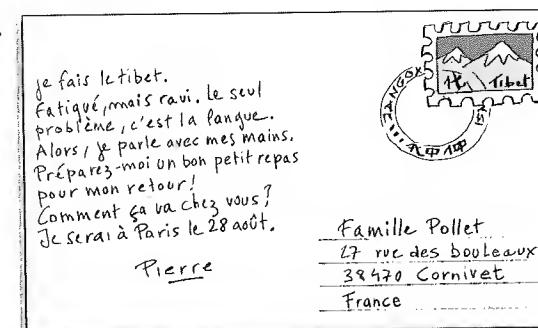 je fais le tibet.
Fatigué, mais ravi. Le seul
problème, c'est la langue.
Alors, je parle avec mes mains.
Préparez-moi un bon petit repas
pour mon retour!
Comment ça va chez vous?
Je serai à Paris le 28 août.
Pierre
Tibet
Famille Pollet
27 rue des bouleaux
38470 Cornivet
France